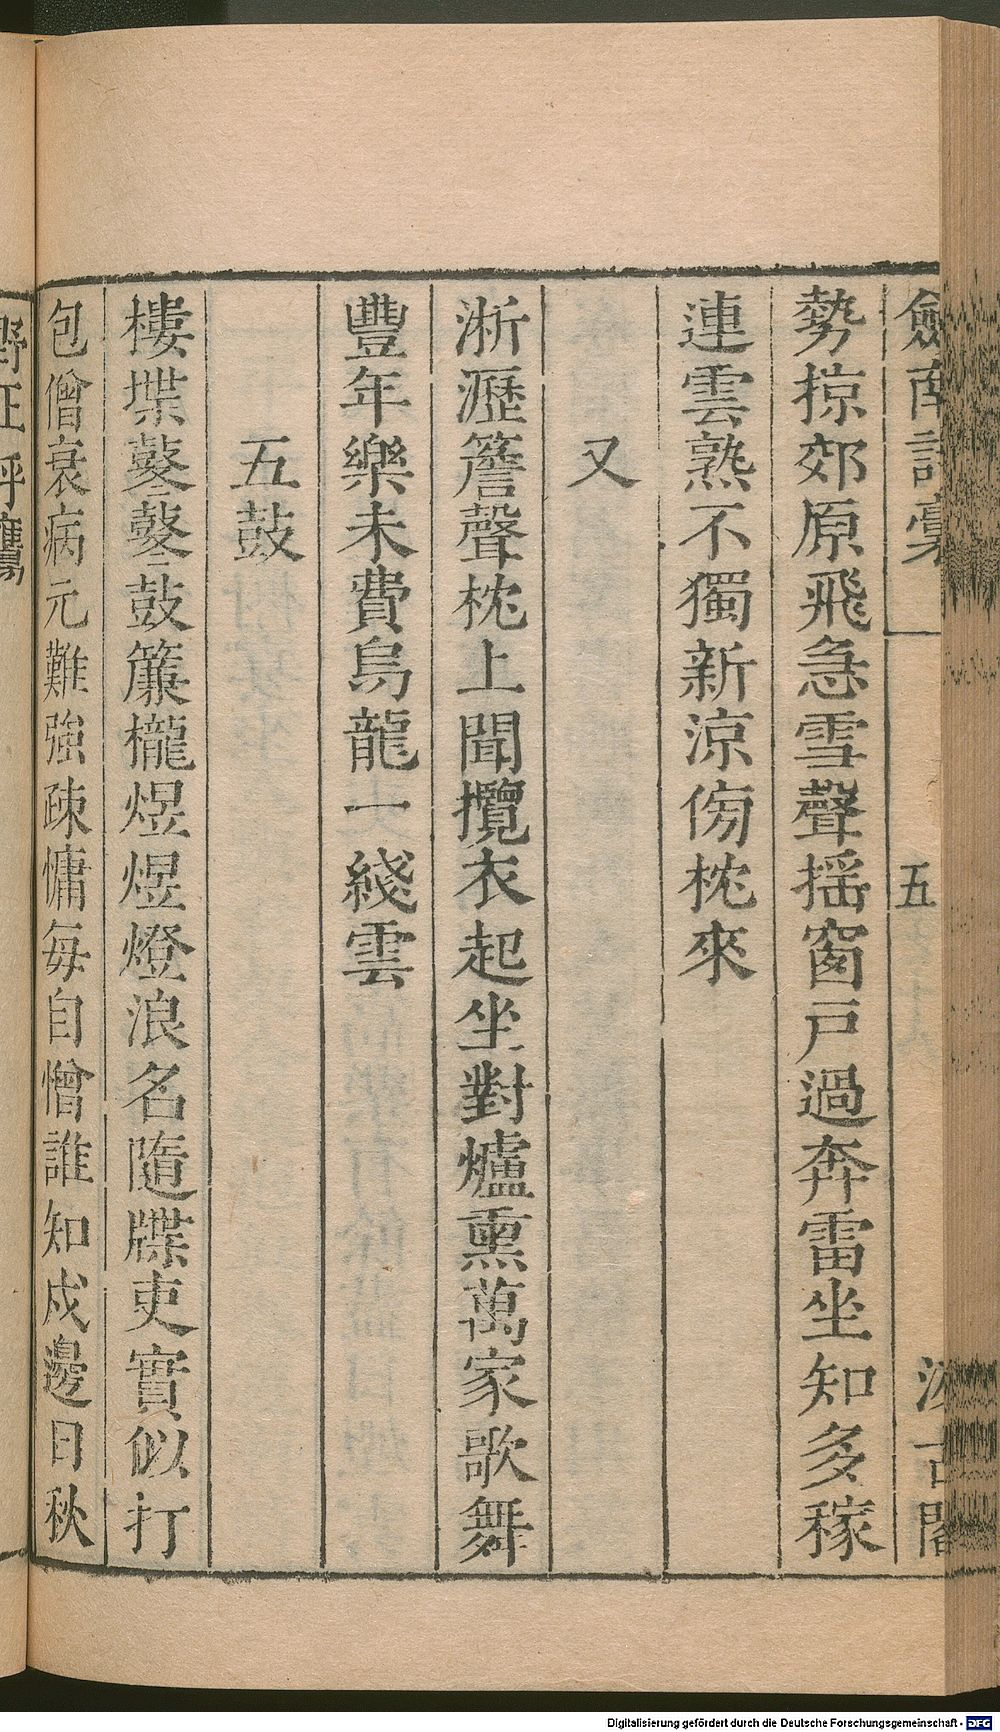 劔南詩稾 五 汲古閣
勢掠郊原飛急雪聲揺窗戸過奔雷坐知多稼
連雲熟不獨新涼傍枕來
又
淅瀝簷聲枕上聞攬衣起坐對爐熏萬家歌舞
豐年樂未費烏龍一綫雲
五鼓
樓堞鼕鼕鼓簾櫳煜煜燈浪名隨牒吏實似打
包僧衰病元難強疎慵每自憎誰知戍邊日秋
野正呼鷹
Digitalisierung gefördert durch die Deutsche Forschungsgemeinschaft - DFG